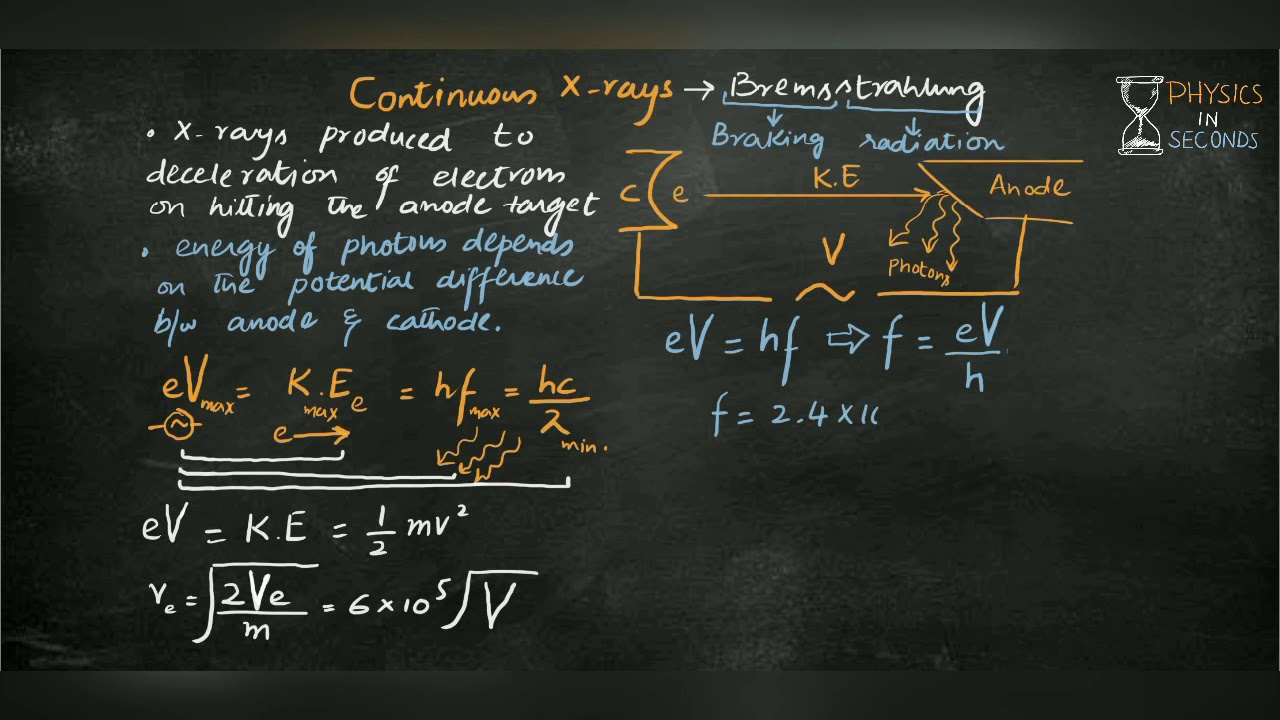 Continuous X-rays → Bremsstrahlung
Braking radiation
PHYSICS
IN
SECONDS
• X-rays produced to
deceleration of electrons
on hitting the anode target
• energy of photons depends
on the potential difference
b/w anode & cathode.
c e K.E Anode
V
Photons
eV = hf ⇨ f = eV/h
f = 2.4 × 10
eVmax = K.Emax e = hfmax = hc/λmin.
e →
eV = K.E = 1/2 mv²
ve = √(2Ve/m) = 6 × 10⁵ √V